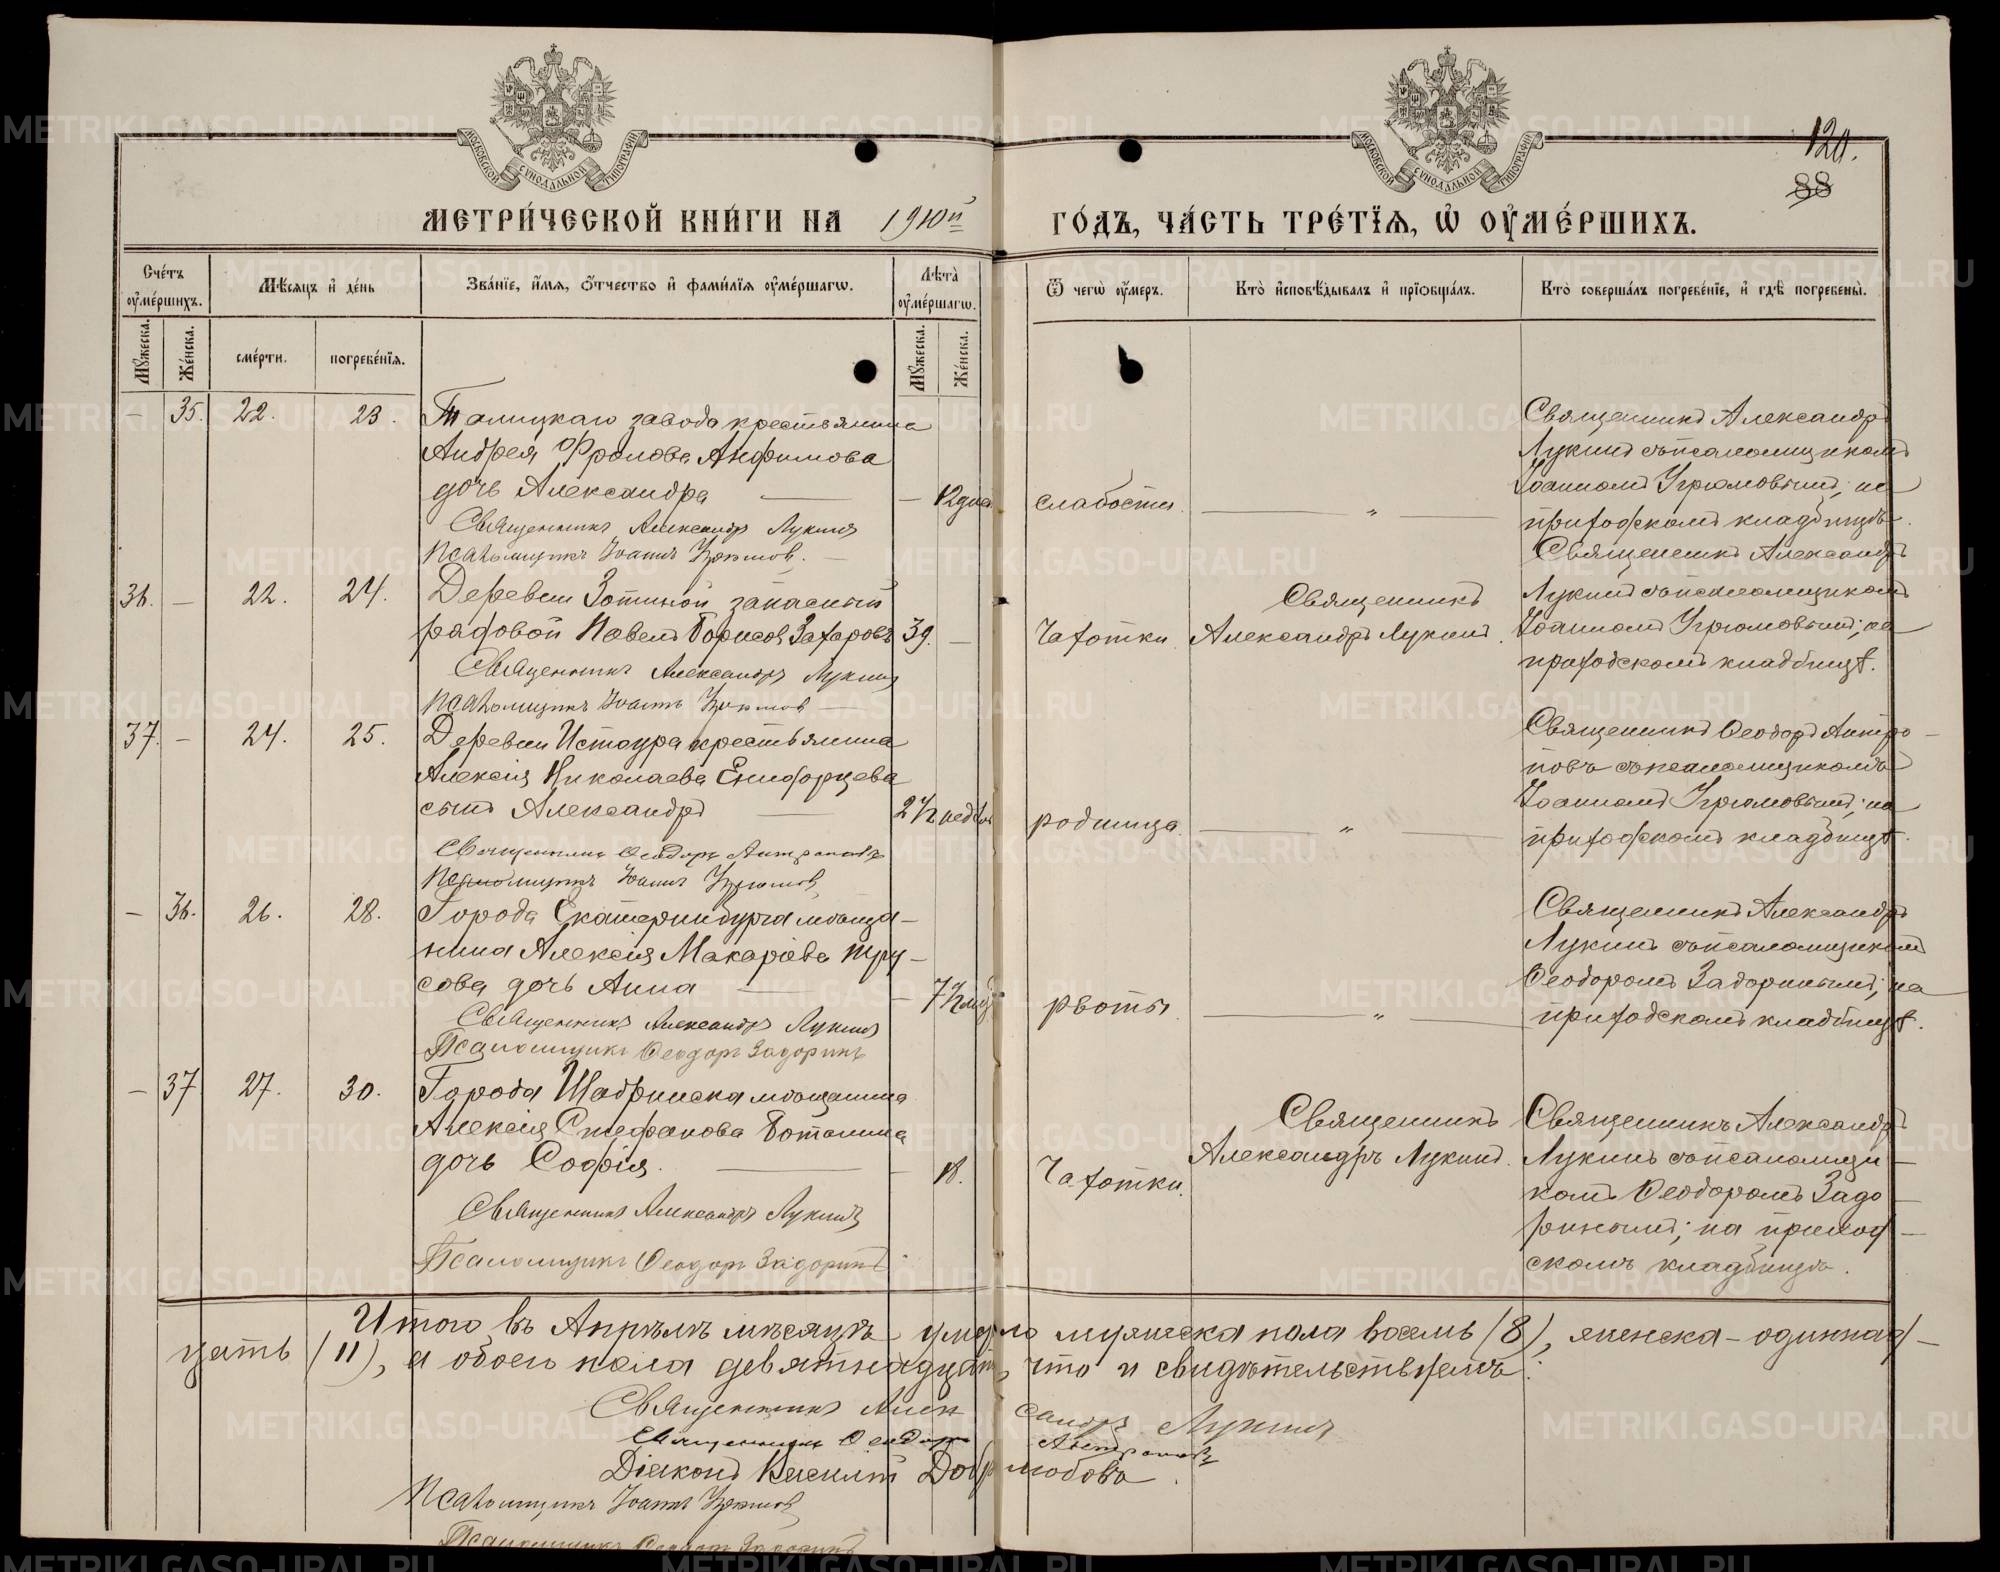 МОСКОВСКОЙ СѴНОДАЛЬНОЙ ТИПОГРАФІИ
МОСКОВСКОЙ СѴНОДАЛЬНОЙ ТИПОГРАФІИ
120.
88
МЕТРИ́ЧЕСКОЙ КНИ́ГИ НА 1910й ГО́ДЪ, ЧА́СТЬ ТРЕ́ТЇѦ, Ѡ҆ ОУ҆МЕ́РШИХЪ.
Сче́тъ оу҆ме́ршихъ.
Мѣ́сяцъ и҆ де́нь
Зва́нїе, и҆́мѧ, ѻ҆́тчество и҆ фами́лїѧ оу҆ме́ршагѡ.
Лѣта̀ оу҆ме́ршагѡ.
Ѿ чегѡ̀ оу҆́меръ.
Кто̀ и҆сповѣ́дывалъ и҆ прїѡбща́лъ.
Кто̀ соверша́лъ погребе́нїе, и҆ гдѣ̀ погребены̀.
Мꙋ́жеска.
Же́нска.
сме́рти.
погребе́нїѧ.
Мꙋ́жеска.
Же́нска.
— 35. 22. 23.
Талицкаго завода крестьянина
Андрея Фролова Анфимова
дочь Александра — — 12 дней
Священникъ Александръ Лукинъ
Псаломщикъ Іоаннъ Угрюмовъ.
слабости. — „ —
Священникъ Александръ
Лукинъ съ псаломщикомъ
Іоанномъ Угрюмовымъ; на
приходскомъ кладбищѣ.
36. — 22. 24.
Деревни Зотиной запасный
рядовой Павелъ Борисовъ Захаровъ 39. —
Священникъ Александръ Лукинъ
Псаломщикъ Іоаннъ Угрюмовъ —
Чахотки.
Священникъ
Александръ Лукинъ.
Священникъ Александръ
Лукинъ съ псаломщикомъ
Іоанномъ Угрюмовымъ; на
приходскомъ кладбищѣ.
37. — 24. 25.
Деревни Истоура крестьянина
Алексія Николаева
сынъ Александръ — 2 ½ недѣл
Священникъ Ѳеодоръ Антроповъ
Псаломщикъ Іоаннъ Угрюмовъ
родимца. — „ —
Священникъ Ѳеодоръ Антро-
повъ съ псаломщикомъ
Іоанномъ Угрюмовымъ; на
приходскомъ кладбищѣ.
— 36. 26. 28.
Города Екатеринбурга мѣща-
нина Алексія Макаріева Тру-
сова дочь Анна — — 7 ½ мѣс
Священникъ Александръ Лукинъ
Псаломщикъ Ѳеодоръ Задоринъ
рвоты. — „ —
Священникъ Александръ
Лукинъ съ псаломщикомъ
Ѳеодоромъ Задоринымъ; на
приходскомъ кладбищѣ.
— 37 27. 30.
Города Шадринска мѣщанина
Алексія Стефанова Ботанина
дочь Софія. — — 18.
Священникъ Александръ Лукинъ
Псаломщикъ Ѳеодоръ Задоринъ
Чахотки.
Священникъ
Александръ Лукинъ.
Священникъ Александръ
Лукинъ съ псаломщи-
комъ Ѳеодоромъ Задо-
ринымъ; на приход-
скомъ кладбищѣ.
Итого въ Апрѣлѣ мѣсяцѣ умерло мужеска пола восемь (8), женска - одиннад-
цать (11), а обоего пола девятнадцать, что и свидѣтельствуемъ:
Священникъ Александръ Лукинъ
Священникъ Ѳеодоръ Антроповъ
Діаконъ Василій Добролюбовъ.
Псаломщикъ Іоаннъ Угрюмовъ
Псаломщикъ Ѳеодоръ Задоринъ
METRIKI.GASO-URAL.RU